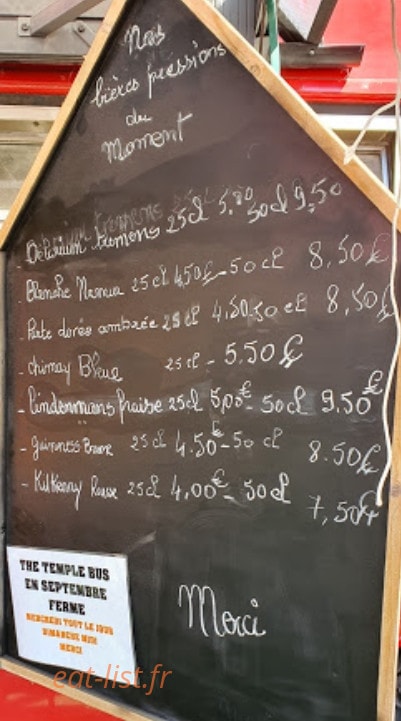 Nos
bières pressions
du
Moment
- Délirium tremens 25cl 5,80 50cl 9,50
- Blanche Namur 25cl 4,50€ - 50cl 8,50€
- Porte dorée ambrée 25cl 4,50 - 50cl 8,50€
- Chimay Bleue 25cl - 5,50€
- Lindermans fraise 25cl 5,00€ - 50cl 9.50€
- Guinness Brune 25cl 4.50€ - 50cl 8.50€
- Kilkenny Rousse 25cl 4,00€ - 50cl 7,50€
Merci
THE TEMPLE BUS
EN SEPTEMBRE
FERME
MERCREDI TOUT LE JOUR
DIMANCHE MIDI
MERCI
eat-list.fr